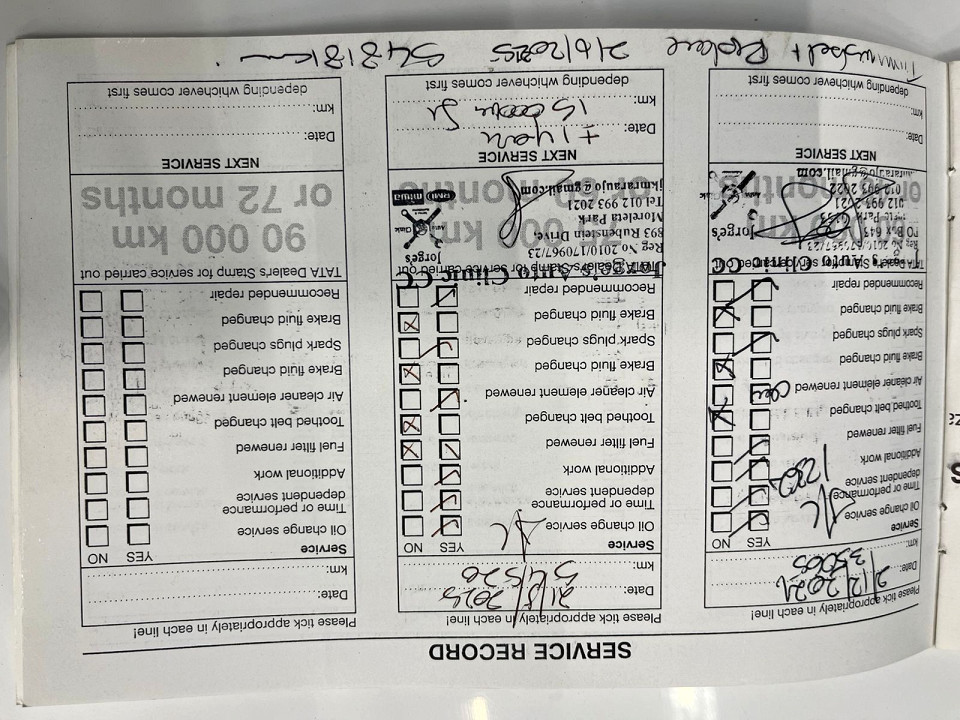 SERVICE RECORD
Please tick appropriately in each line!
Date: 2/12/2024
km: 35005
Service YES NO
Oil change service
Time or performance dependent service
Additional work
Fuel filter renewed
Toothed belt changed
Air cleaner element renewed
Brake fluid changed
Spark plugs changed
Brake fluid changed
Recommended repair
Auto Clinic CC
Jorge's
012 993 2021
NEXT SERVICE
Date:
km:
depending whichever comes first
Please tick appropriately in each line!
Date: 21/5/2025
km: 54520
Service YES NO
Oil change service
Time or performance dependent service
Additional work
Fuel filter renewed
Toothed belt changed
Air cleaner element renewed
Brake fluid changed
Spark plugs changed
Brake fluid changed
Recommended repair
TATA Dealer's Stamp for service carried out
Jorge's Auto Clinic CC
Reg No 2010/170967/23
893 Rubenstein Drive,
Moreleta Park
Tel 012 993 2021
jkmraraujo@gmail.com
Jorge's
NEXT SERVICE
Date: ± 1 year
km: 15 000km
depending whichever comes first
Please tick appropriately in each line!
Date:
km:
Service YES NO
Oil change service
Time or performance dependent service
Additional work
Fuel filter renewed
Toothed belt changed
Air cleaner element renewed
Brake fluid changed
Spark plugs changed
Brake fluid changed
Recommended repair
TATA Dealer's Stamp for service carried out
90 000 km
or 72 months
NEXT SERVICE
Date:
km:
depending whichever comes first
belt Replace 2/6/2025 54818km